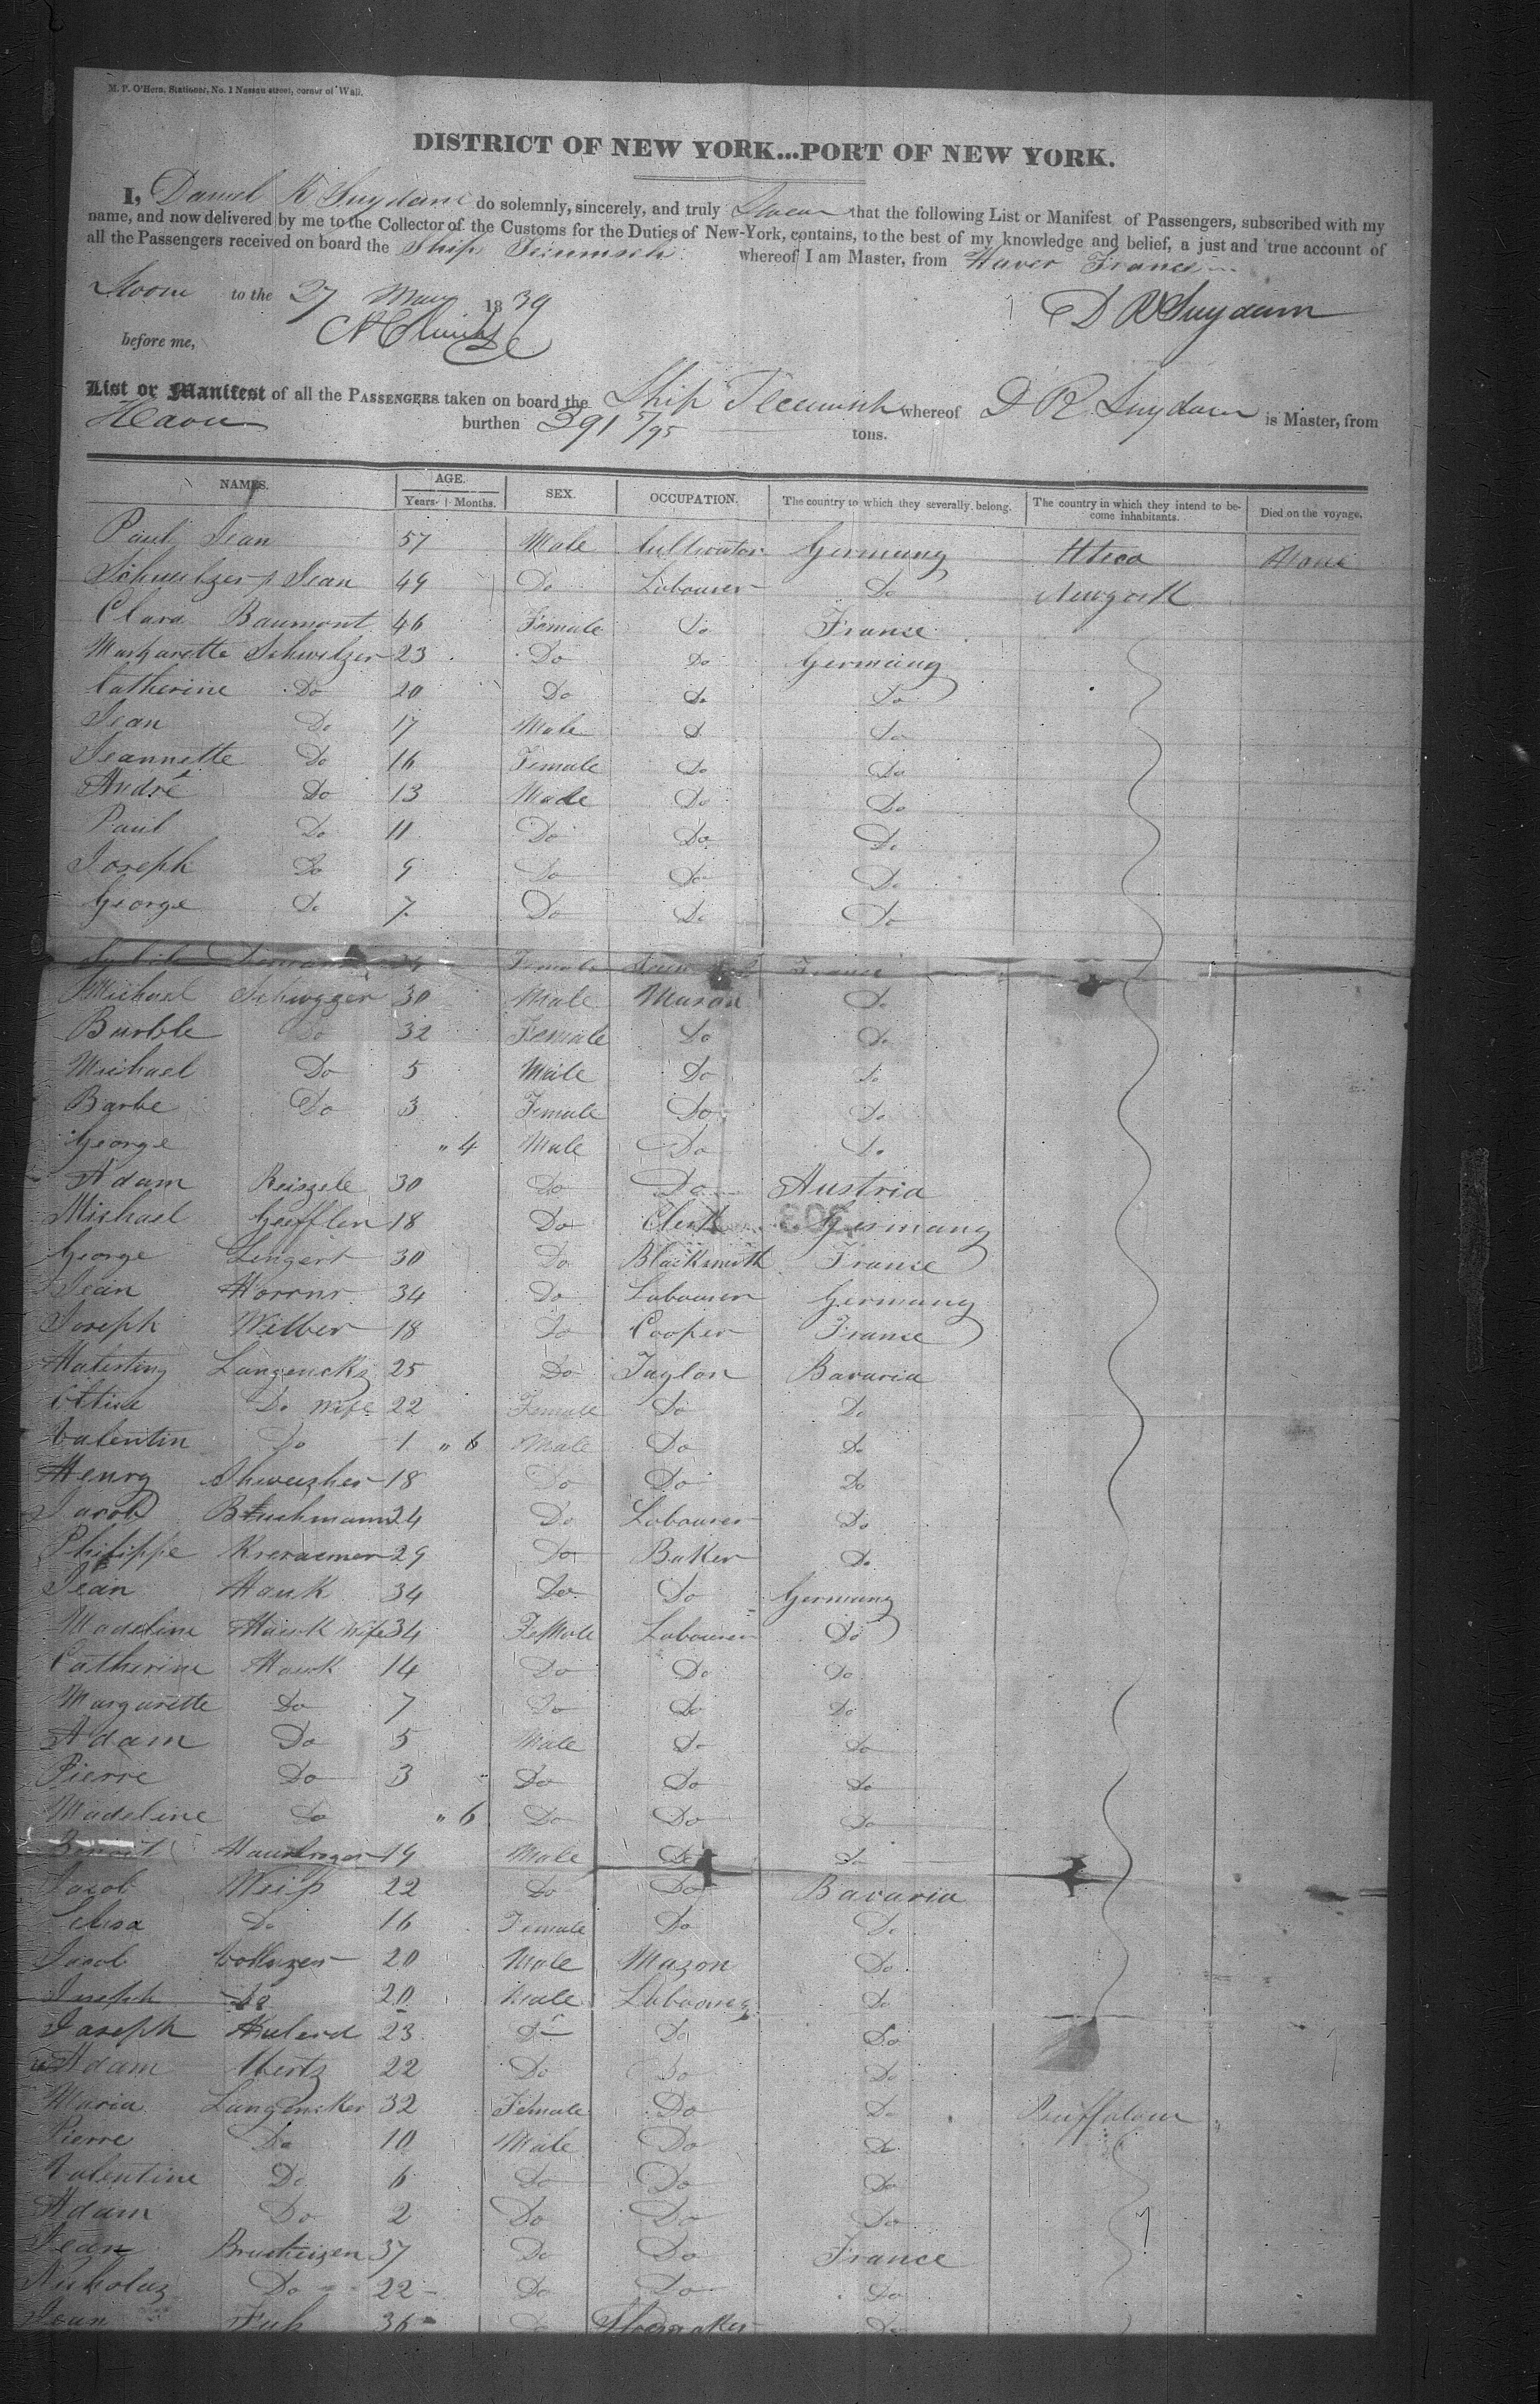 M. P. O'Hern, Stationer, No. 1 Nassau street, corner of Wall.
DISTRICT OF NEW YORK...PORT OF NEW YORK.
I, Daniel R Suydam do solemnly, sincerely, and truly Swear that the following List or Manifest of Passengers, subscribed with my
name, and now delivered by me to the Collector of the Customs for the Duties of New-York, contains, to the best of my knowledge and belief, a just and true account of
all the Passengers received on board the Ship whereof I am Master, from Havre France
to the 27 May 1839
D R Suydam
before me,
List or Manifest of all the PASSENGERS taken on board the Ship Tecumseh whereof D R Suydam is Master, from
burthen 391 5/95 tons.
NAMES. AGE. SEX. OCCUPATION. The country to which they severally belong. The country in which they intend to become inhabitants. Died on the voyage.
Years. Months.
Paul Jean 57 Male Cultivator Germany Utica None
Schweitzer Jean 49 Do Labourer Do Newyork
Clara Baumont 46 Female Do France
Margarette Schweitzer 23 Do Do Germany
Catherine Do 20 Do Do Do
Jean Do 17 Male Do Do
Jeannette Do 16 Female Do Do
André Do 13 Male Do Do
Paul Do 11 Do Do Do
Joseph Do 9 Do Do Do
George Do 7 Do Do Do
Female France
Michael Schwgger 30 Male Mason Do
Burble Do 32 Female Do Do
Michael Do 5 Male Do Do
Barbe Do 3 Female Do Do
George " 4 Male Do Do
Adam Reiszele 30 Do Do Austria
Michael Geffler 18 Do Clerk Germany
George Lingert 30 Do Blacksmith France
Jean 34 Do Labourer Germany
Joseph Wilber 18 Do Cooper France
Langencker 25 Do Taylor Bavaria
Do Wife 22 Female Do Do
Valentin Do 1 " 6 Male Do Do
Henry 18 Do Do Do
Jacob 24 Do Labourer Do
Philippe 29 Do Baker Do
Jean Hauk 34 Do Do Germany
Madeline Hauk Wife 34 Female Labourer Do
Catherine Hauk 14 Do Do Do
Margarette Do 7 Do Do Do
Adam Do 5 Male Do Do
Pierre Do 3 Do Do Do
Madeline Do " 6 Do Do Do
Benoit 19 Male Do Do
Jacob Weip 22 Do Do Bavaria
Do 16 Female Do Do
Jacob 20 Male Mazon Do
Joseph Do 20 Male Labourer Do
Joseph 23 Do Do Do
Adam Mertz 22 Do Do Do
Maria Langencker 32 Female Do Do
Pierre Do 10 Male Do Do
Valentine Do 6 Do Do Do
Adam Do 2 Do Do Do
Jean 37 Do Do France
Nicholas Do 22 Do Do Do
Jean 36 Do Shoemaker Do